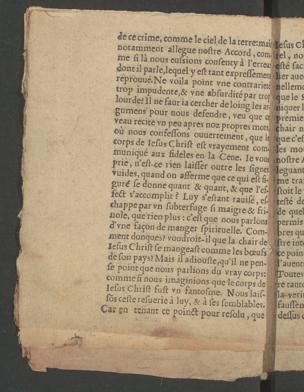 de ce crime, comme le ciel de la terre: mais
notamment allegue nostre Accord, com
me si là nous eussions consenty à l'erreur
dont il parle, lequel y est tant expressemen
reprouué. Ne voila point vne contrarieté
trop impudente, & vne absurdité par trop
lourde? Il ne faut ia cercher de loing les ar
gumens pour nous defendre, veu que
veau recite vn peu apres noz propres mots
où nous confessons ouuertement, que le
corps de Iesus Christ est vrayement com
muniqué aux fideles en la Cene. Ie vou
prie, n'est-ce rien laisser outre les signes
vuides, quand on asserme que ce qui est fi-
guré se donne quant & quant, & que l'ef-
fect s'accomplit? Luy s'estant rauisé, es-
chappe par vn subterfuge si maigre & fri-
uole, que rien plus: c'est que nous parlons
d'vne façon de manger spirituelle. Com-
ment donques? voudroit-il que la chair de
Iesus Christ se mangeast comme les bœufs
de son pays? Mais il adiouste, qu'il ne pen-
se point que nous parlions du vray corps:
comme si nous imaginions que le corps de
Iesus Christ fust vn fantosme. Nous lais-
sons ceste resuerie à luy, & à ses semblables.
Car en tenant ce poinct pour resolu, que